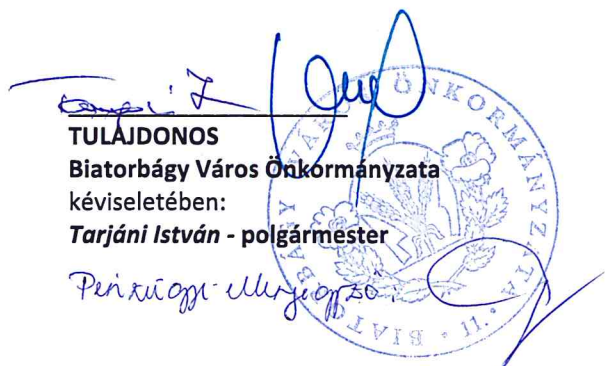 TULAJDONOS
Biatorbágy Város Önkormányzata
kéviseletében:
Tarjáni István - polgármester
Pénzügyi ellenjegyző:
BIATORBÁGY VÁROS ÖNKORMÁNYZATA • 11. •